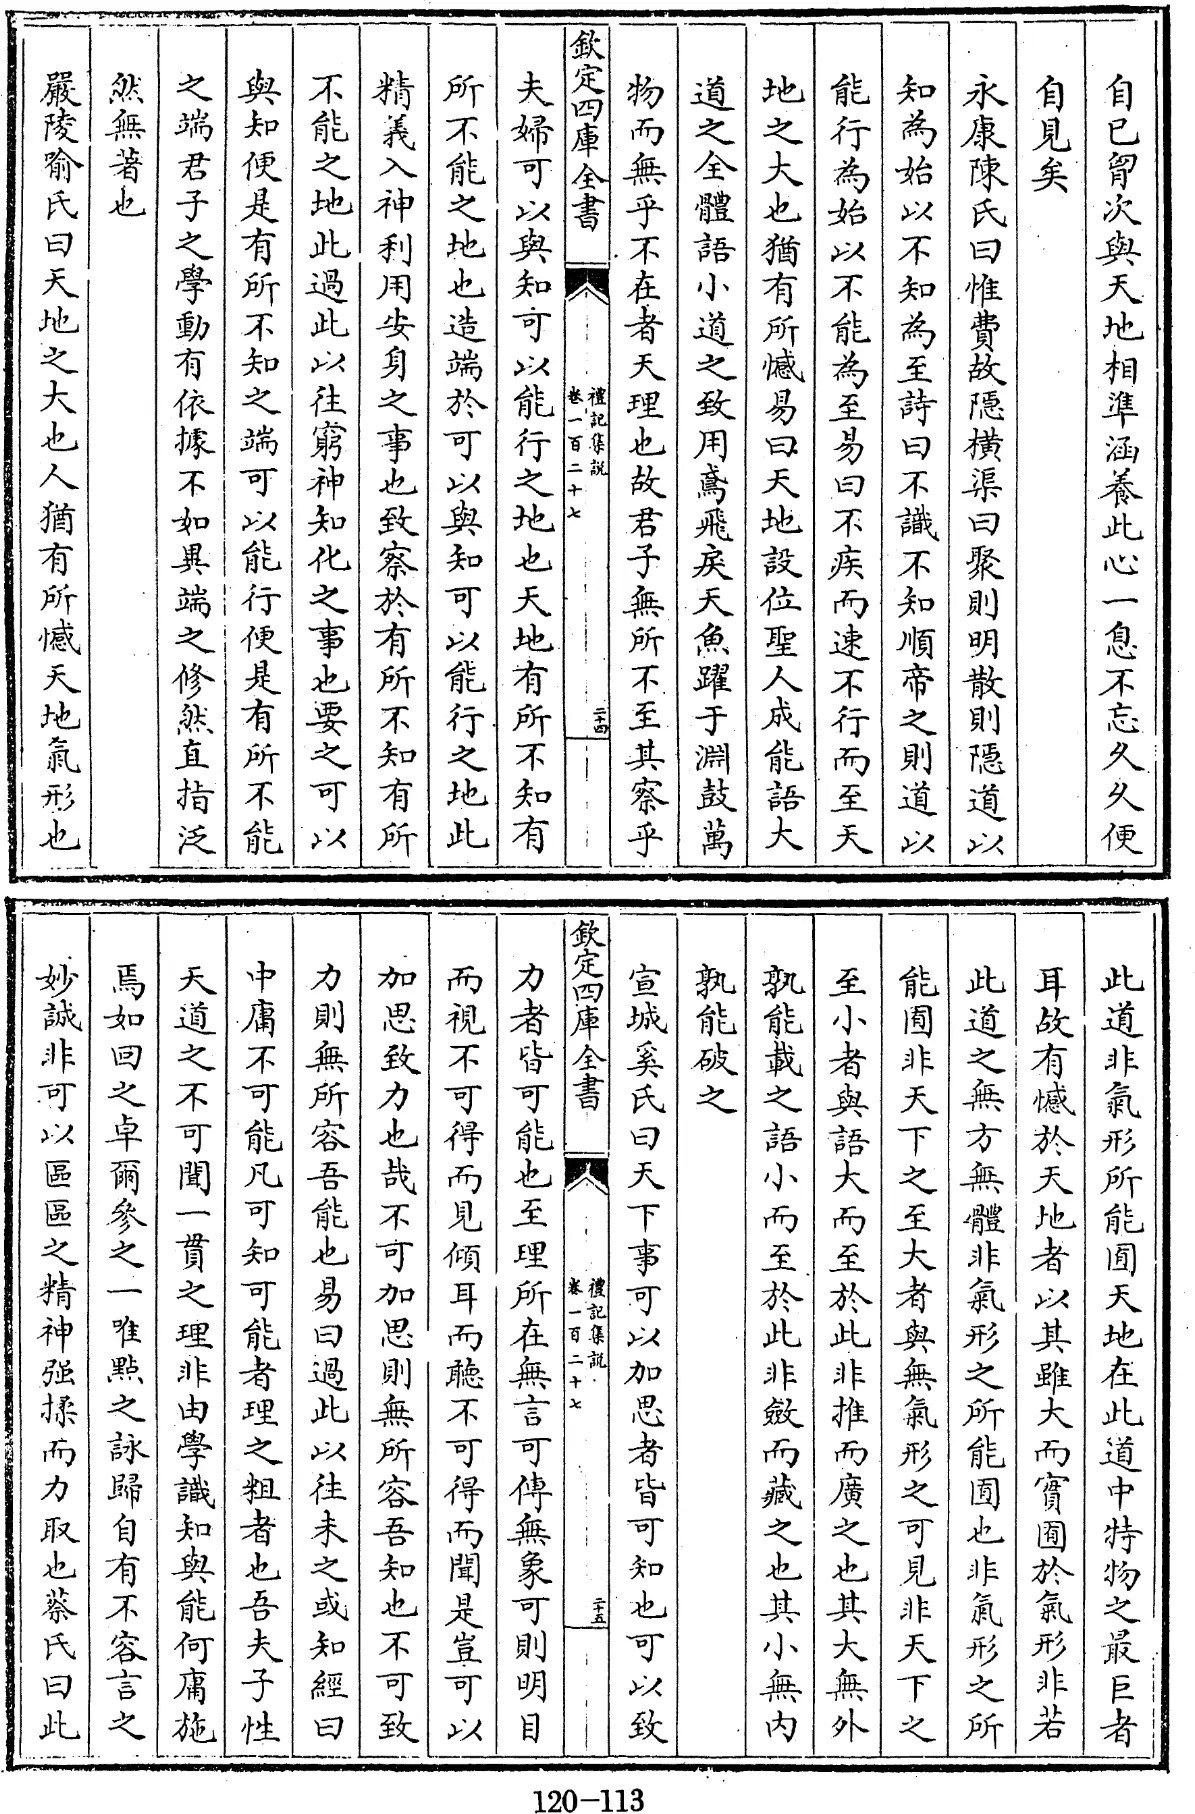 自已胷次與天地相準涵養此心一息不忘久久便
自見矣
永康陳氏曰惟費故隱橫渠曰聚則明散則隱道以
知為始以不知為至詩曰不識不知順帝之則道以
能行為始以不能為至易曰不疾而速不行而至天
地之大也猶有所憾易曰天地設位聖人成能語大
道之全體語小道之致用鳶飛戾天魚躍于淵鼓萬
物而無乎不在者天理也故君子無所不至其察乎
欽定四庫全書
禮記集說
卷一百二十七
二十四
夫婦可以與知可以能行之地也天地有所不知有
所不能之地也造端於可以與知可以能行之地此
精義入神利用安身之事也致察於有所不知有所
不能之地此過此以往窮神知化之事也要之可以
與知便是有所不知之端可以能行便是有所不能
之端君子之學動有依據不如異端之脩然直指泛
然無著也
嚴陵喻氏曰天地之大也人猶有所憾天地氣形也
此道非氣形所能囿天地在此道中特物之最巨者
耳故有憾於天地者以其雖大而實囿於氣形非若
此道之無方無體非氣形之所能囿也非氣形之所
能囿非天下之至大者與無氣形之可見非天下之
至小者與語大而至於此非推而廣之也其大無外
孰能載之語小而至於此非斂而藏之也其小無內
孰能破之
宣城奚氏曰天下事可以加思者皆可知也可以致
欽定四庫全書
禮記集說
卷一百二十七
二十五
力者皆可能也至理所在無言可傳無象可則明目
而視不可得而見傾耳而聽不可得而聞是豈可以
加思致力也哉不可加思則無所容吾知也不可致
力則無所容吾能也易曰過此以往未之或知經曰
中庸不可能凡可知可能者理之粗者也吾夫子性
天道之不可聞一貫之理非由學識知與能何庸施
焉如回之卓爾參之一唯點之詠歸自有不容言之
妙誠非可以區區之精神强揉而力取也蔡氏曰此
120-113